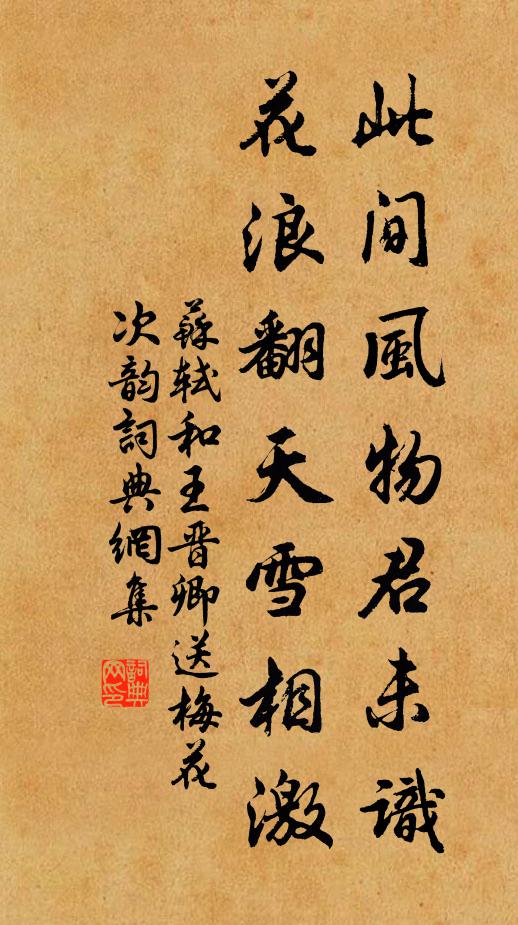 此間風物君未識
花浪翻天雪相激
蘇軾和王晉卿送梅花
次韵詞典網集
詞典
网印